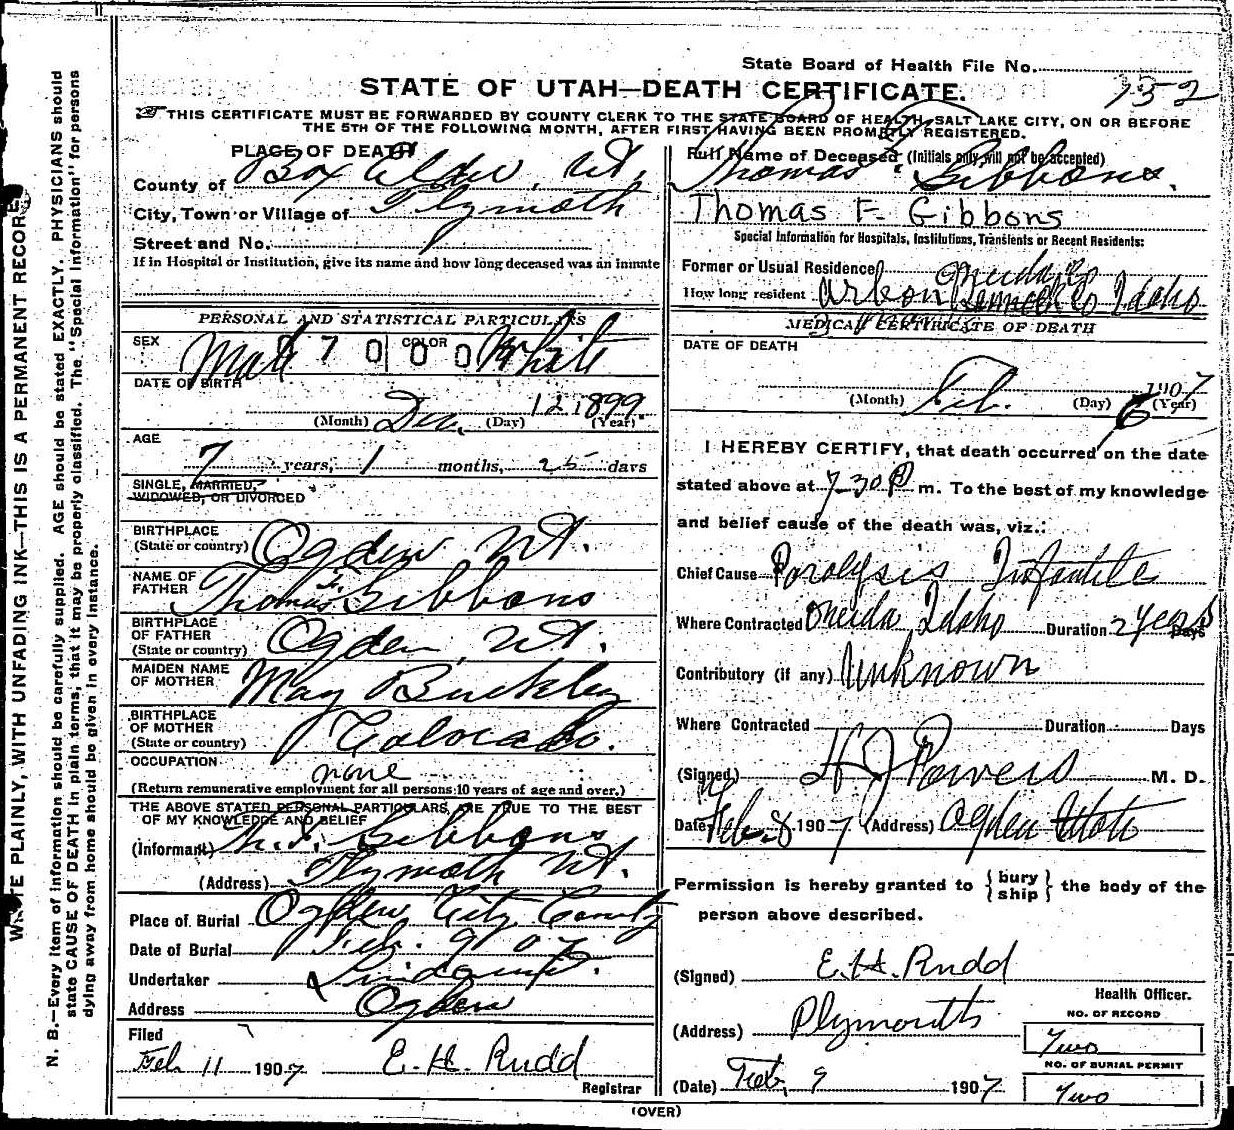 State Board of Health File No.
STATE OF UTAH—DEATH CERTIFICATE.
752
THIS CERTIFICATE MUST BE FORWARDED BY COUNTY CLERK TO THE STATE BOARD OF HEALTH, SALT LAKE CITY, ON OR BEFORE
THE 5TH OF THE FOLLOWING MONTH, AFTER FIRST HAVING BEEN PROMPTLY REGISTERED.
WRITE PLAINLY, WITH UNFADING INK—THIS IS A PERMANENT RECORD
N. B.—Every item of information should be carefully supplied. AGE should be stated EXACTLY. PHYSICIANS should
state CAUSE OF DEATH in plain terms, that it may be properly classified. The "Special Information" for persons
dying away from home should be given in every instance.
PLACE OF DEATH
County of Box Elder, Ut.
City, Town or Village of Plymoth
Street and No.
If in Hospital or Institution, give its name and how long deceased was an inmate
PERSONAL AND STATISTICAL PARTICULARS
SEX Male 700 COLOR 00 White
DATE OF BIRTH
(Month) Dec. (Day) 12 1899. (Year)
AGE
7 years, 1 months, 25 days
SINGLE, MARRIED,
WIDOWED, OR DIVORCED
BIRTHPLACE
(State or country) Ogden Ut.
NAME OF
FATHER Thomas F. Gibbons
BIRTHPLACE
OF FATHER
(State or country) Ogden, Ut.
MAIDEN NAME
OF MOTHER May Buckley
BIRTHPLACE
OF MOTHER
(State or country) Colorado.
OCCUPATION
none
(Return remunerative employment for all persons 10 years of age and over.)
THE ABOVE STATED PERSONAL PARTICULARS ARE TRUE TO THE BEST
OF MY KNOWLEDGE AND BELIEF
(Informant) Gibbons
(Address) Plymoth Ut.
Place of Burial Ogden City
Date of Burial Feb. 9 07
Undertaker Lindquist.
Address Ogden
Filed
Feb 11 1907 E. H. Rudd
Registrar
Full Name of Deceased (Initials only will not be accepted)
Thomas F. Gibbons.
Thomas F. Gibbons
Special Information for Hospitals, Institutions, Transients or Recent Residents:
Former or Usual Residence Oneida Co
How long resident Arbon Idaho
MEDICAL CERTIFICATE OF DEATH
DATE OF DEATH
(Month) Feb. (Day) 6 1907 (Year)
I HEREBY CERTIFY, that death occurred on the date
stated above at 7-30 P m. To the best of my knowledge
and belief cause of the death was, viz.:
Chief Cause Paralysis Infantile
Where Contracted Oneida, Idaho Duration 2 years Days
Contributory (if any) Unknown
Where Contracted Duration Days
(Signed) H J Powers M. D.
Date, Feb. 8 1907 (Address) Ogden Utah
Permission is hereby granted to { bury ship } the body of the
person above described.
(Signed) E. H. Rudd
Health Officer.
(Address) Plymouth
NO. OF RECORD
Two
NO. OF BURIAL PERMIT
Two
(Date) Feb, 9 1907
(OVER)